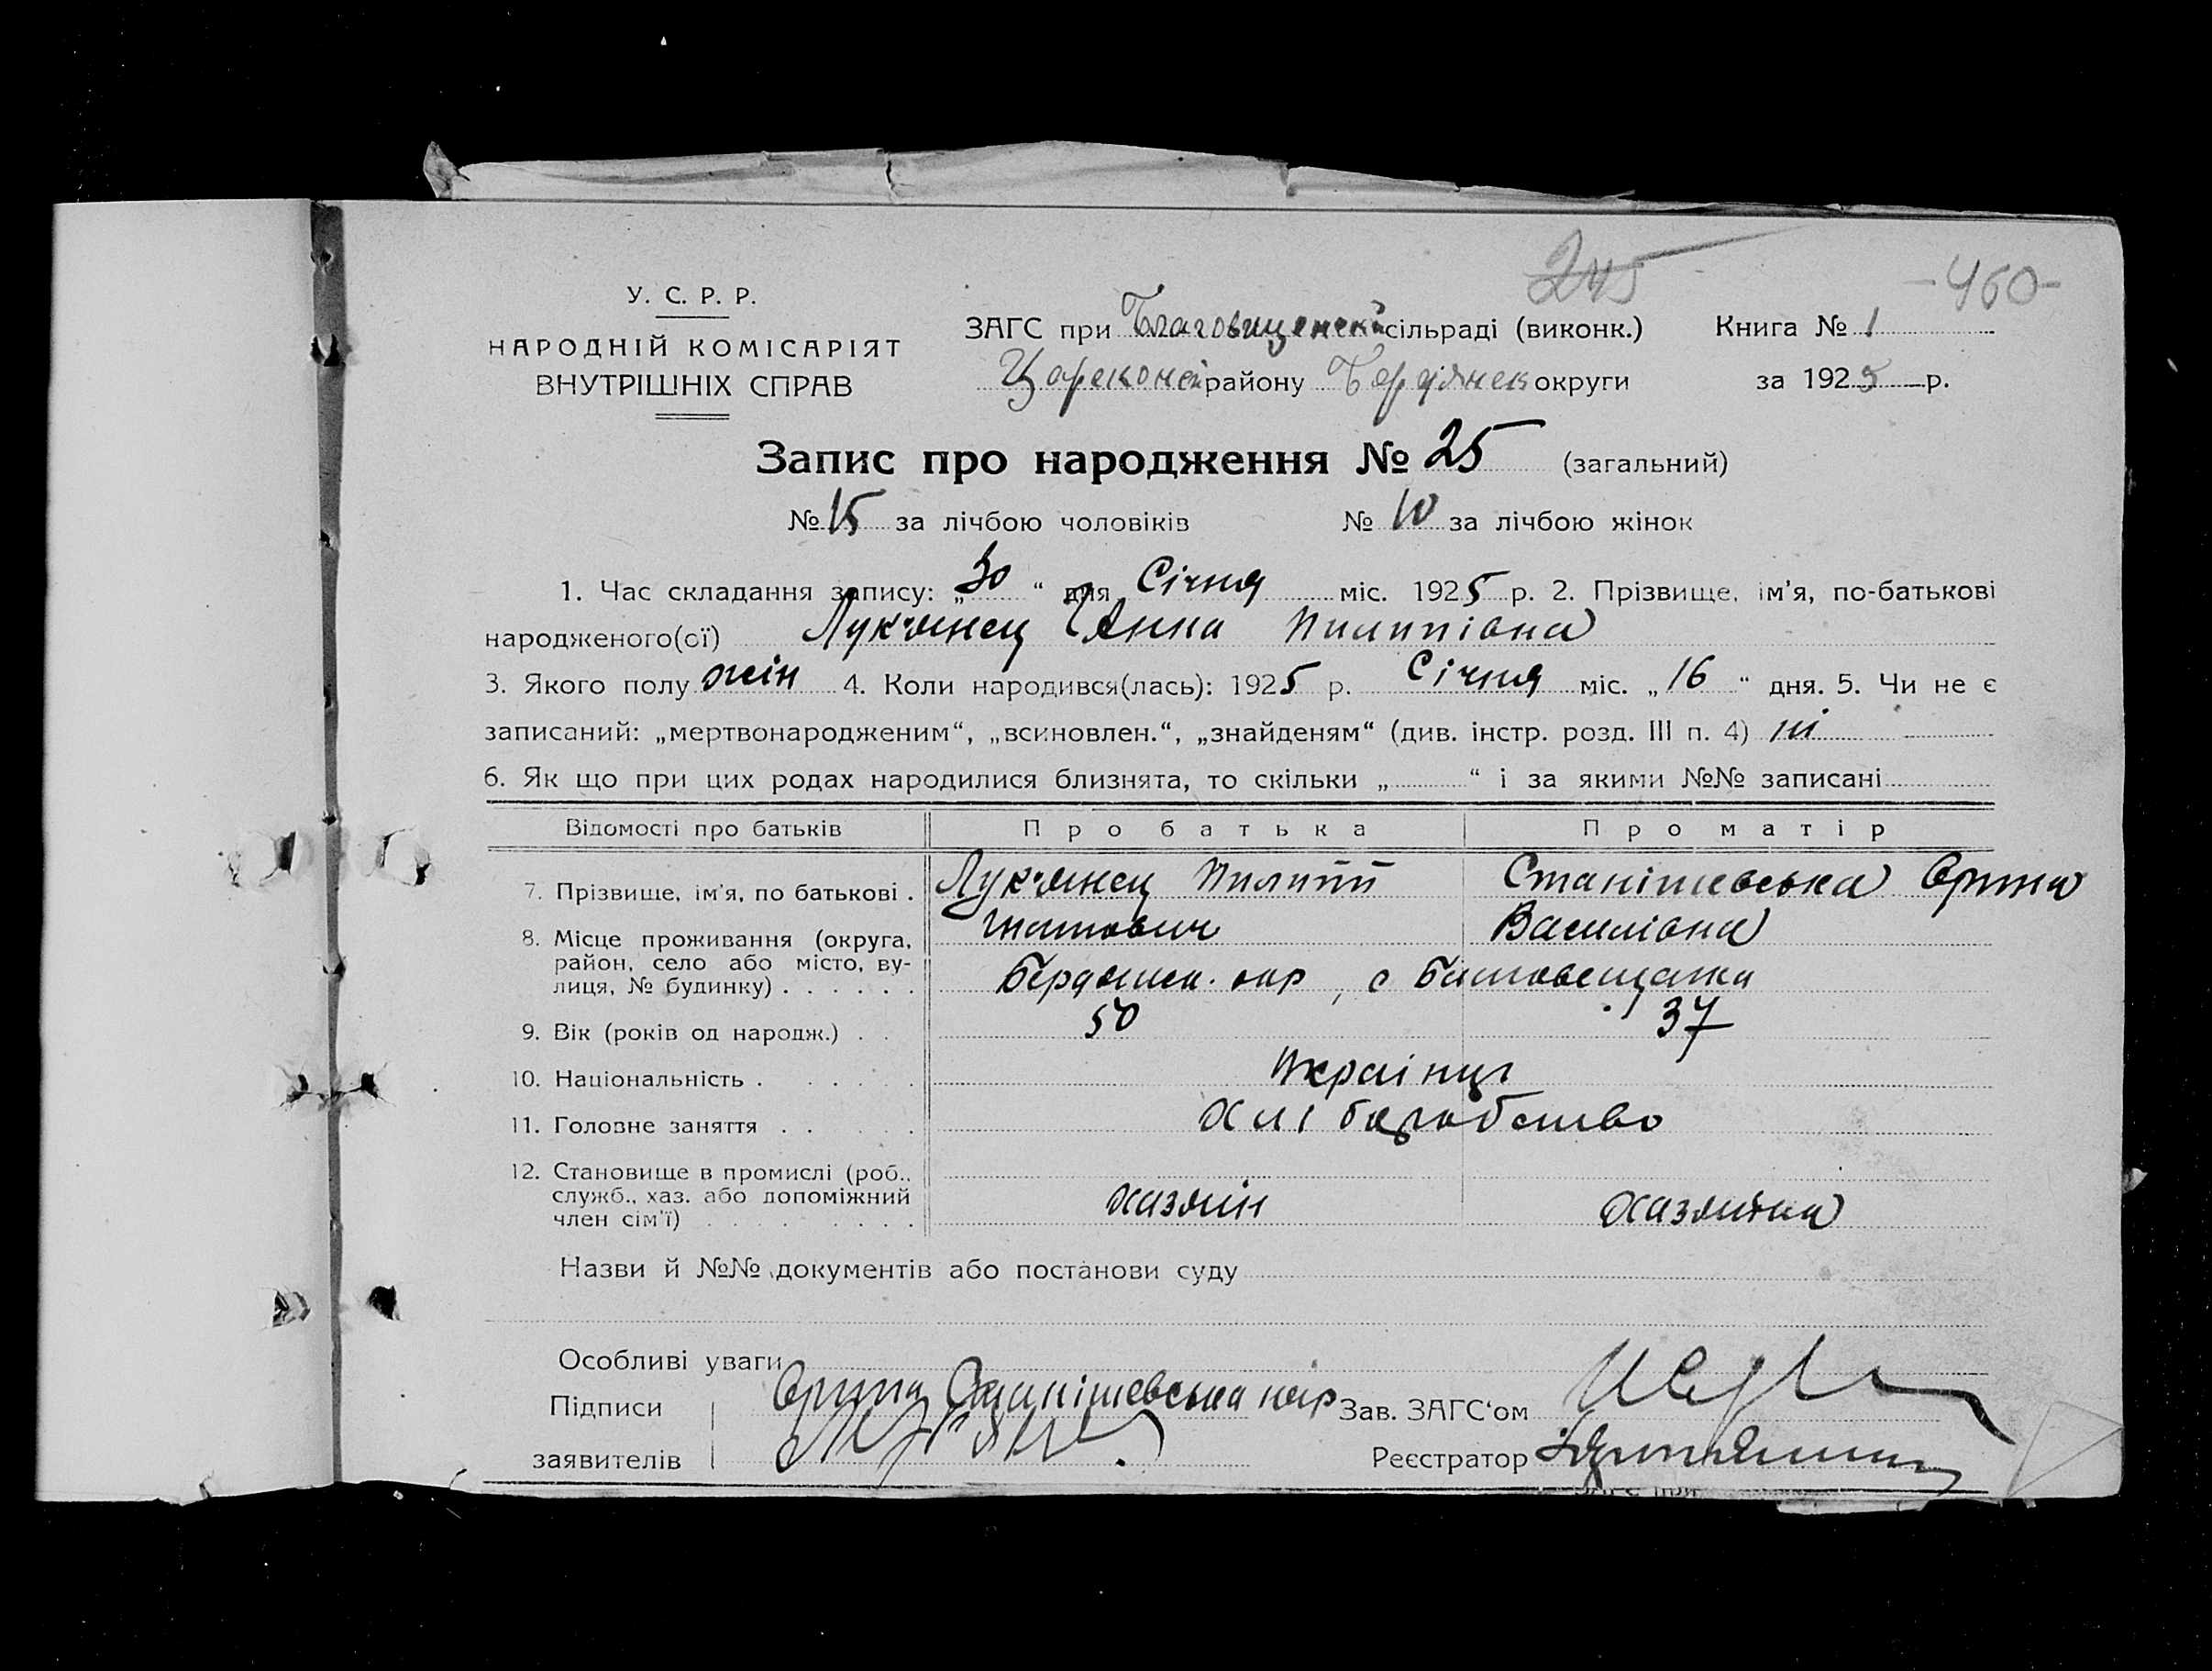 245 -460-
У. С. Р. Р.
НАРОДНІЙ КОМІСАРІЯТ
ВНУТРІШНІХ СПРАВ
ЗАГС при Благовищенській сільраді (виконк.) Книга № 1
району Бердянськ округи за 1925 р.
Запис про народження № 25 (загальний)
№ 15 за лічбою чоловіків № 10 за лічбою жінок
1. Час складання запису: „30“ дня Січня міс. 1925 р. 2. Прізвище, ім'я, по-батькові
народженого(ої) Лук'янец Ганна Пилипівна
3. Якого полу жін 4. Коли народився(лась): 1925 р. Січня міс. „16“ дня. 5. Чи не є
записаний: „мертвонародженим“, „всиновлен.“, „знайденям“ (див. інстр. розд. III п. 4) ні
6. Як що при цих родах народилися близнята, то скільки „ “ і за якими №№ записані
Відомості про батьків Про батька Про матір
7. Прізвище, ім'я, по батькові . Лук'янец Пилип Станішевська Орина
Василівна
8. Місце проживання (округа,
район, село або місто, ву-
лиця, № будинку) . . . . . . Бердянськ. окр, с
9. Вік (років од народж.) . . 50 37
10. Національність . . . . . . Українці
11. Головне заняття . . . Хліборобство
12. Становище в промислі (роб.,
служб., хаз. або допоміжний
член сім'ї) . . . . . . . . . хазяїн хазяйка
Назви й №№ документів або постанови суду
Особливі уваги
Підписи Орина Станішевська Зав. ЗАГС'ом
заявителів Реєстратор